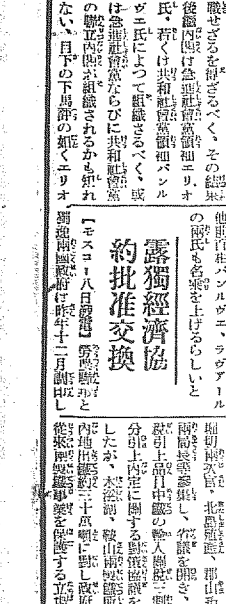 職せざるを得ざるべく、その結果
後繼内閣は急進社會黨領袖エリオ
氏、若くは共和社會黨領袖パンル
ヴエ氏によつて組織さるべく、或
は急進社會黨ならびに共和社會黨
の聯立内閣が組織されるかも知れ
ない、目下の下馬評の如くエリオ
他前首相パンルヴエ、ラヴアール
の兩氏も名乘を上げるらしいと
露獨經濟協
約批准交換
【モスコー八日發電】勞農聯邦と
獨逸兩國政府は昨年十二月調印し
堀朝兩次官、北島殖産、郡山
兩局長等參集し、省議を開き、
税引上品目中鐵の輸入關税三割
分引上内定に關する對策協議を
したが、本溪湖、鞍山兩製鐵
内地出鐵約三十萬噸に對し政府
從來兩製鐵事業を保護する立場